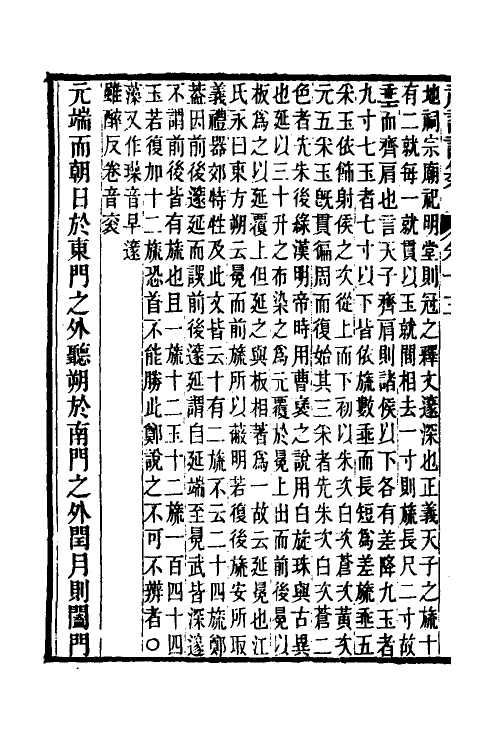 地祠宗廟祀明堂則冠之釋文邃深也正義天子之旒十
有二就每一就貫以玉就間相去一寸則旒長尺二寸故
垂而齊肩也言天子齊肩則諸侯以下各有差降九玉者
九寸七玉者七寸以下皆依旒數垂而長短為差旒垂五
采玉依飾射侯之次從上而下初以朱次白次蒼次黃次
元五采玉旣貫徧周而復始其三采者先朱次白次蒼二
色者先朱後綠漢明帝時用曹襃之說用白旋珠與古異
也延以三十升之布染之為元覆於冕上出而前後冕以
板為之以延覆上但延之與板相著為一故云延冕也江
氏永曰東方朔云冕而前旒所以蔽明若復後旒安所取
義禮器郊特牲及此文皆云十有二旒不云二十四旒鄭
蓋因前後邃延而誤前後邃延謂自延端至冕武皆深邃
不謂前後皆有旒也且一旒十二玉十二旒一百四十四
玉若復加十二旒恐首不能勝此鄭說之不可不辨者○
藻又作璪音早邃
雖醉反卷音衮
元端而朝日於東門之外聽朔於南門之外閏月則闔門